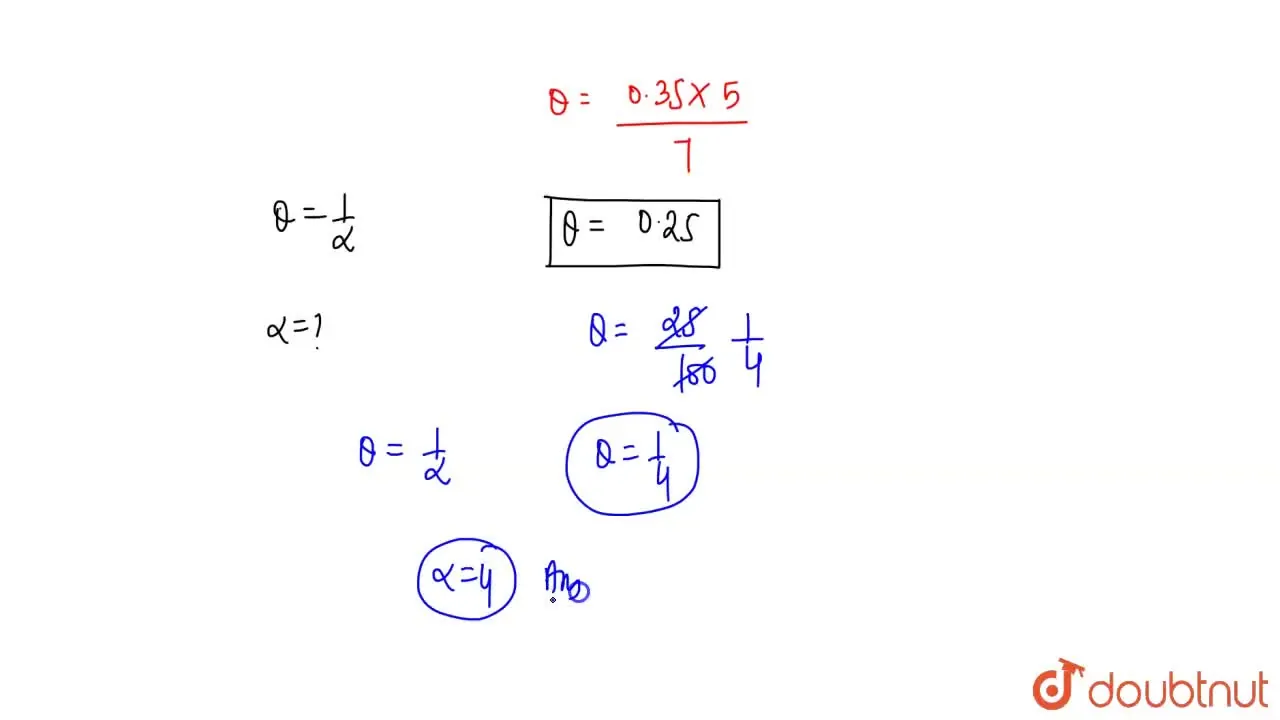 θ = 0.35 × 5 / 7
θ = 1/α
θ = 0.25
α = ?
θ = 25/100 1/4
θ = 1/α θ = 1/4
α = 4 Ans
doubtnut